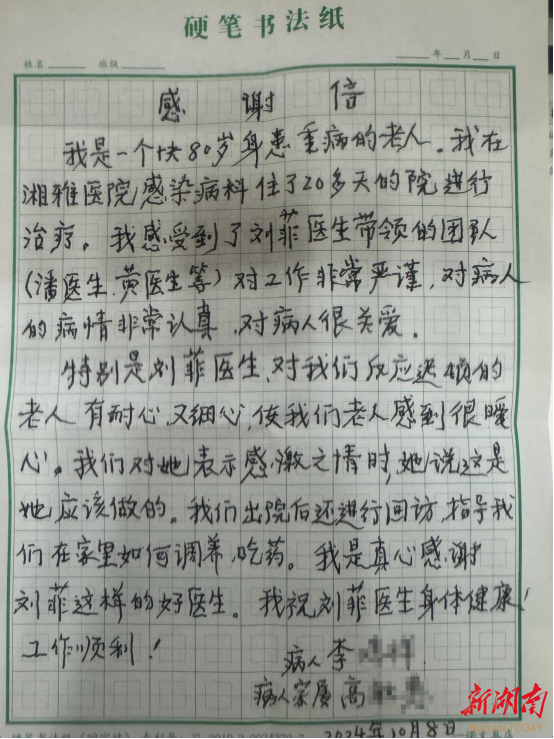 硬笔书法纸
姓名 班级 年 月 日
感谢信
我是一个快80岁身患重病的老人。我在
湘雅医院感染病科住了20多天的院进行
治疗。我感受到了刘菲医生带领的团队
(潘医生、黄医生等)对工作非常严谨,对病人
的病情非常认真,对病人很关爱。
特别是刘菲医生,对我们反应迟顿的
老人有耐心,又细心,使我们老人感到很暖
心。我们对她表示感激之情时,她说这是
她应该做的。我们出院后还进行回访,指导我
们在家里如何调养,吃药。我是真心感谢
刘菲这样的好医生。我祝刘菲医生身体健康!
工作顺利!
病人 李
病人家属 高
新湖南
2024年10月8日